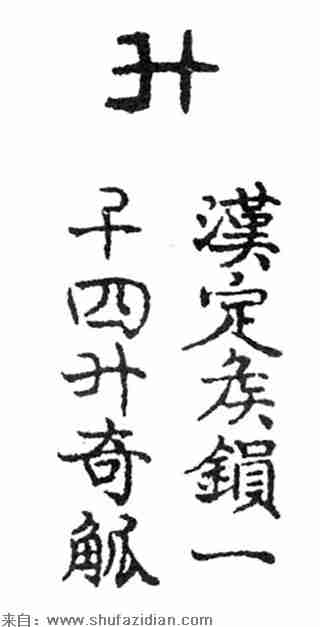 升
漢定矦鎱一
斗四升奇觚
来自：www.shufazidian.com